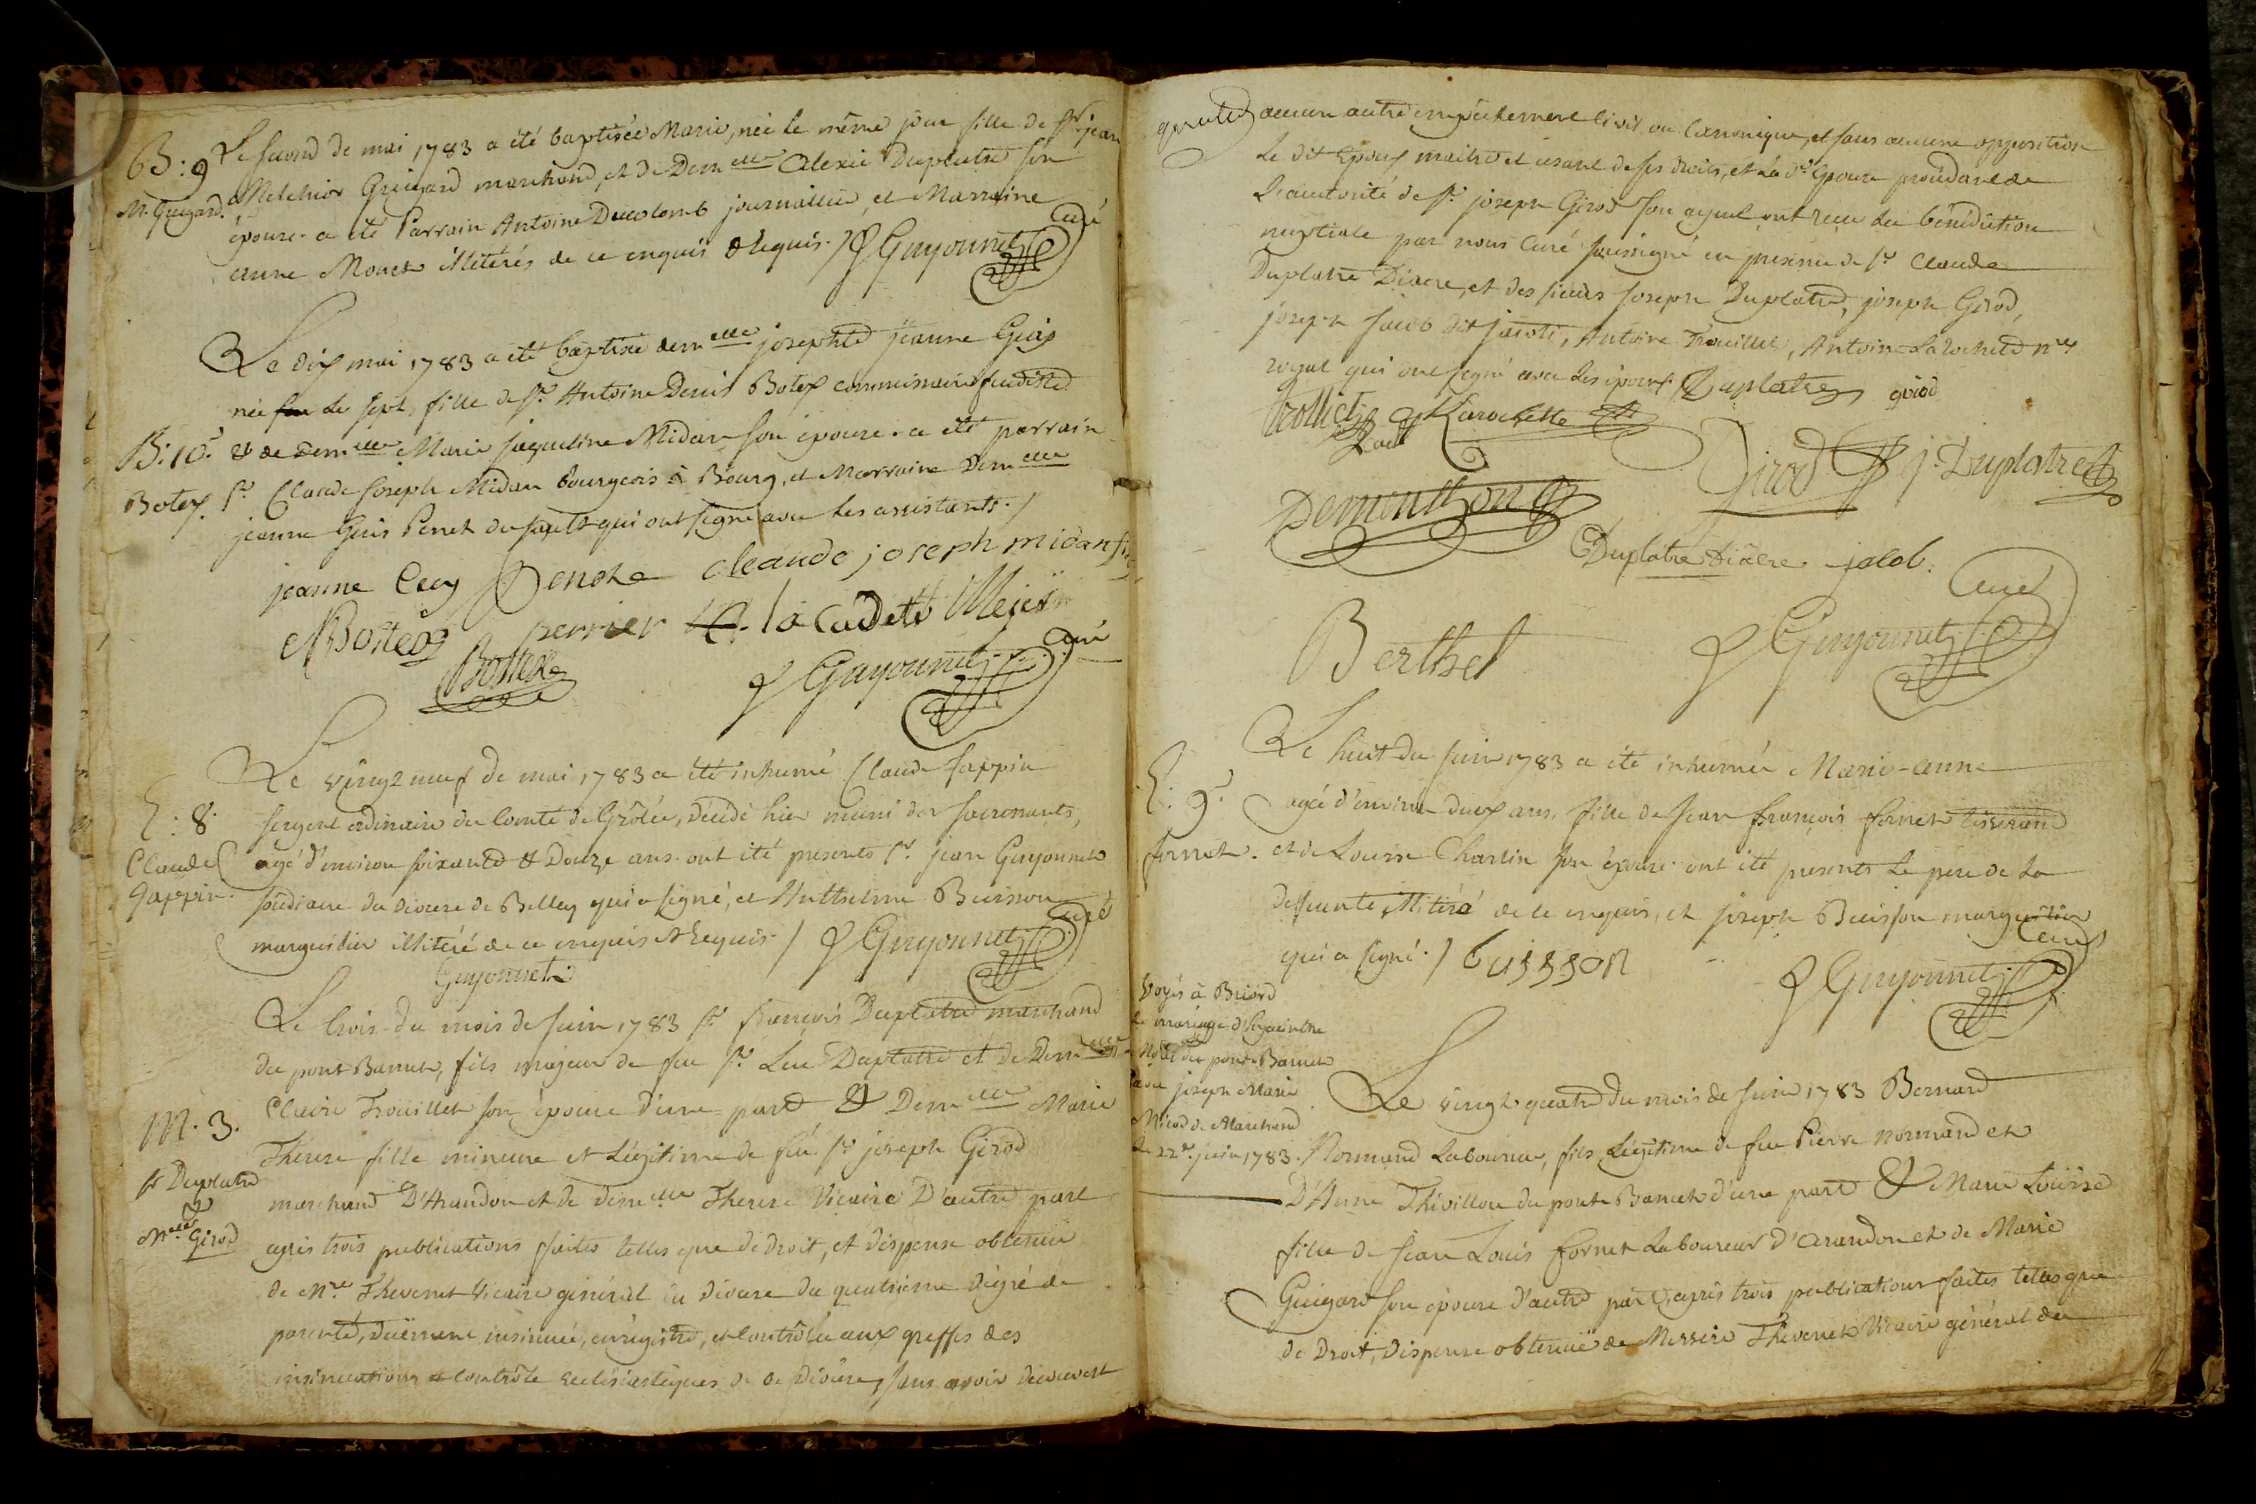 B: 9
M. Guigard.
Le second de mai 1783 a été baptisée Marie, née le même jour fille de Sr. jean
Melchior Guigard marchand, et de Demelle Alexie Duplatre son
épouse. a été Parrain Antoine Ducolomb journallier, et Marraine
anne Monet illitérés de ce enquis & requis. / Guyonnet Curé
Le dix mai 1783 a été baptisée demelle josephte jeanne
née le sept, fille de Sr. Antoine Denis Botex commissaire feudiste
B: 10.
Botex.
& de demelle Marie jaqueline Midan son épouse. a été parrain
Sr. Claude joseph Midan bourgeois à Bourg, et Marraine Demelle
jeanne Perret du qui ont signé avec les assistants. /
jeanne claude joseph midan
perrier la Cadette
Botex
Guyonnet Curé
E: 8.
Claude
Gappin.
Le vingt neuf de mai 1783 a été inhumé Claude Gappin
sergent ordinaire du Comté de Grôlée, décédé hier muni des sacrements,
agé d'environ soixante & Douze ans. ont été présents Sr. jean Guyonnet
du diocese de Belley qui a signé, et Anthelme Buisson
marguillier illitéré de ce enquis & requis. / Guyonnet Curé
Guyonnet
M. 3.
Sr Duplatre
&
Melle Girod
Le trois du mois de juin 1783 Sr. françois Duplatre marchand
du pont Bancet, fils majeur de feu Sr. Duplatre et de Demelle
Claire Trouillet son épouse d'une part & Demelle Marie
Therese fille mineure et Légitime de feu Sr joseph Girod
marchand D'Arandon et de demelle Therese Vicaire D'autre part
après trois publications faites telles que de droit, et dispense obtenuë
de Mre Thevenet Vicaire général du diocese du quatrieme degré de
parenté, duëment insinuée, enregistrée, et controllée aux greffes des
insinuations & controle ecclésiastiques de ce diocese, sans avoir découvert
aucun autre empêchement Civil ou Canonique, et sans aucune opposition
Le dit époux maitre et usant de ses droits, et La de. épouse procédant de
L'autorité de Sr. joseph Girod son ayeul ont reçu La bénédiction
nuptiale par nous Curé soussigné en presence de Sr Claude
Duplatre Diacre, et des sieurs joseph Duplatre, joseph Girod,
joseph jacob dit jacoti, Antoine Trouillet, Antoine Larochette nre
royal qui ont signé avec les époux. Duplatre girod
trolliet Larochette
Girod j. Duplatre
Demonthon
Duplatre diacre jacob.
Berthet
Guyonnet Curé
E: 9.
fornet.
Le huit du juin 1783 a été inhumée Marie-anne
agée d'environ deux ans, fille de jean françois fornet tisserand
et de Louise Charlin son épouse. ont été presents Le père de La
deffunte, illitéré de ce enquis, et joseph Buisson marguillier
qui a signé. / buisson
Guyonnet Curé
Voyés à Briord
le mariage d'hyacinthe
du pont Bancet
avec joseph Marie
de Marchand
Le 22e. juin 1783.
Le vingt quatre du mois de juin 1783 Bernard
Normand Laboureur, fils Légitime de feu Pierre Normand et
D'Anne Thivillon du pont Bancet d'une part & Marie Louïse
fille de jean Louis fornet Laboureur d'arandon et de Marie
Guigard son épouse d'autre part, après trois publications faites telles que
de Droit, dispense obtenuë de Messire Thevenet Vicaire général du